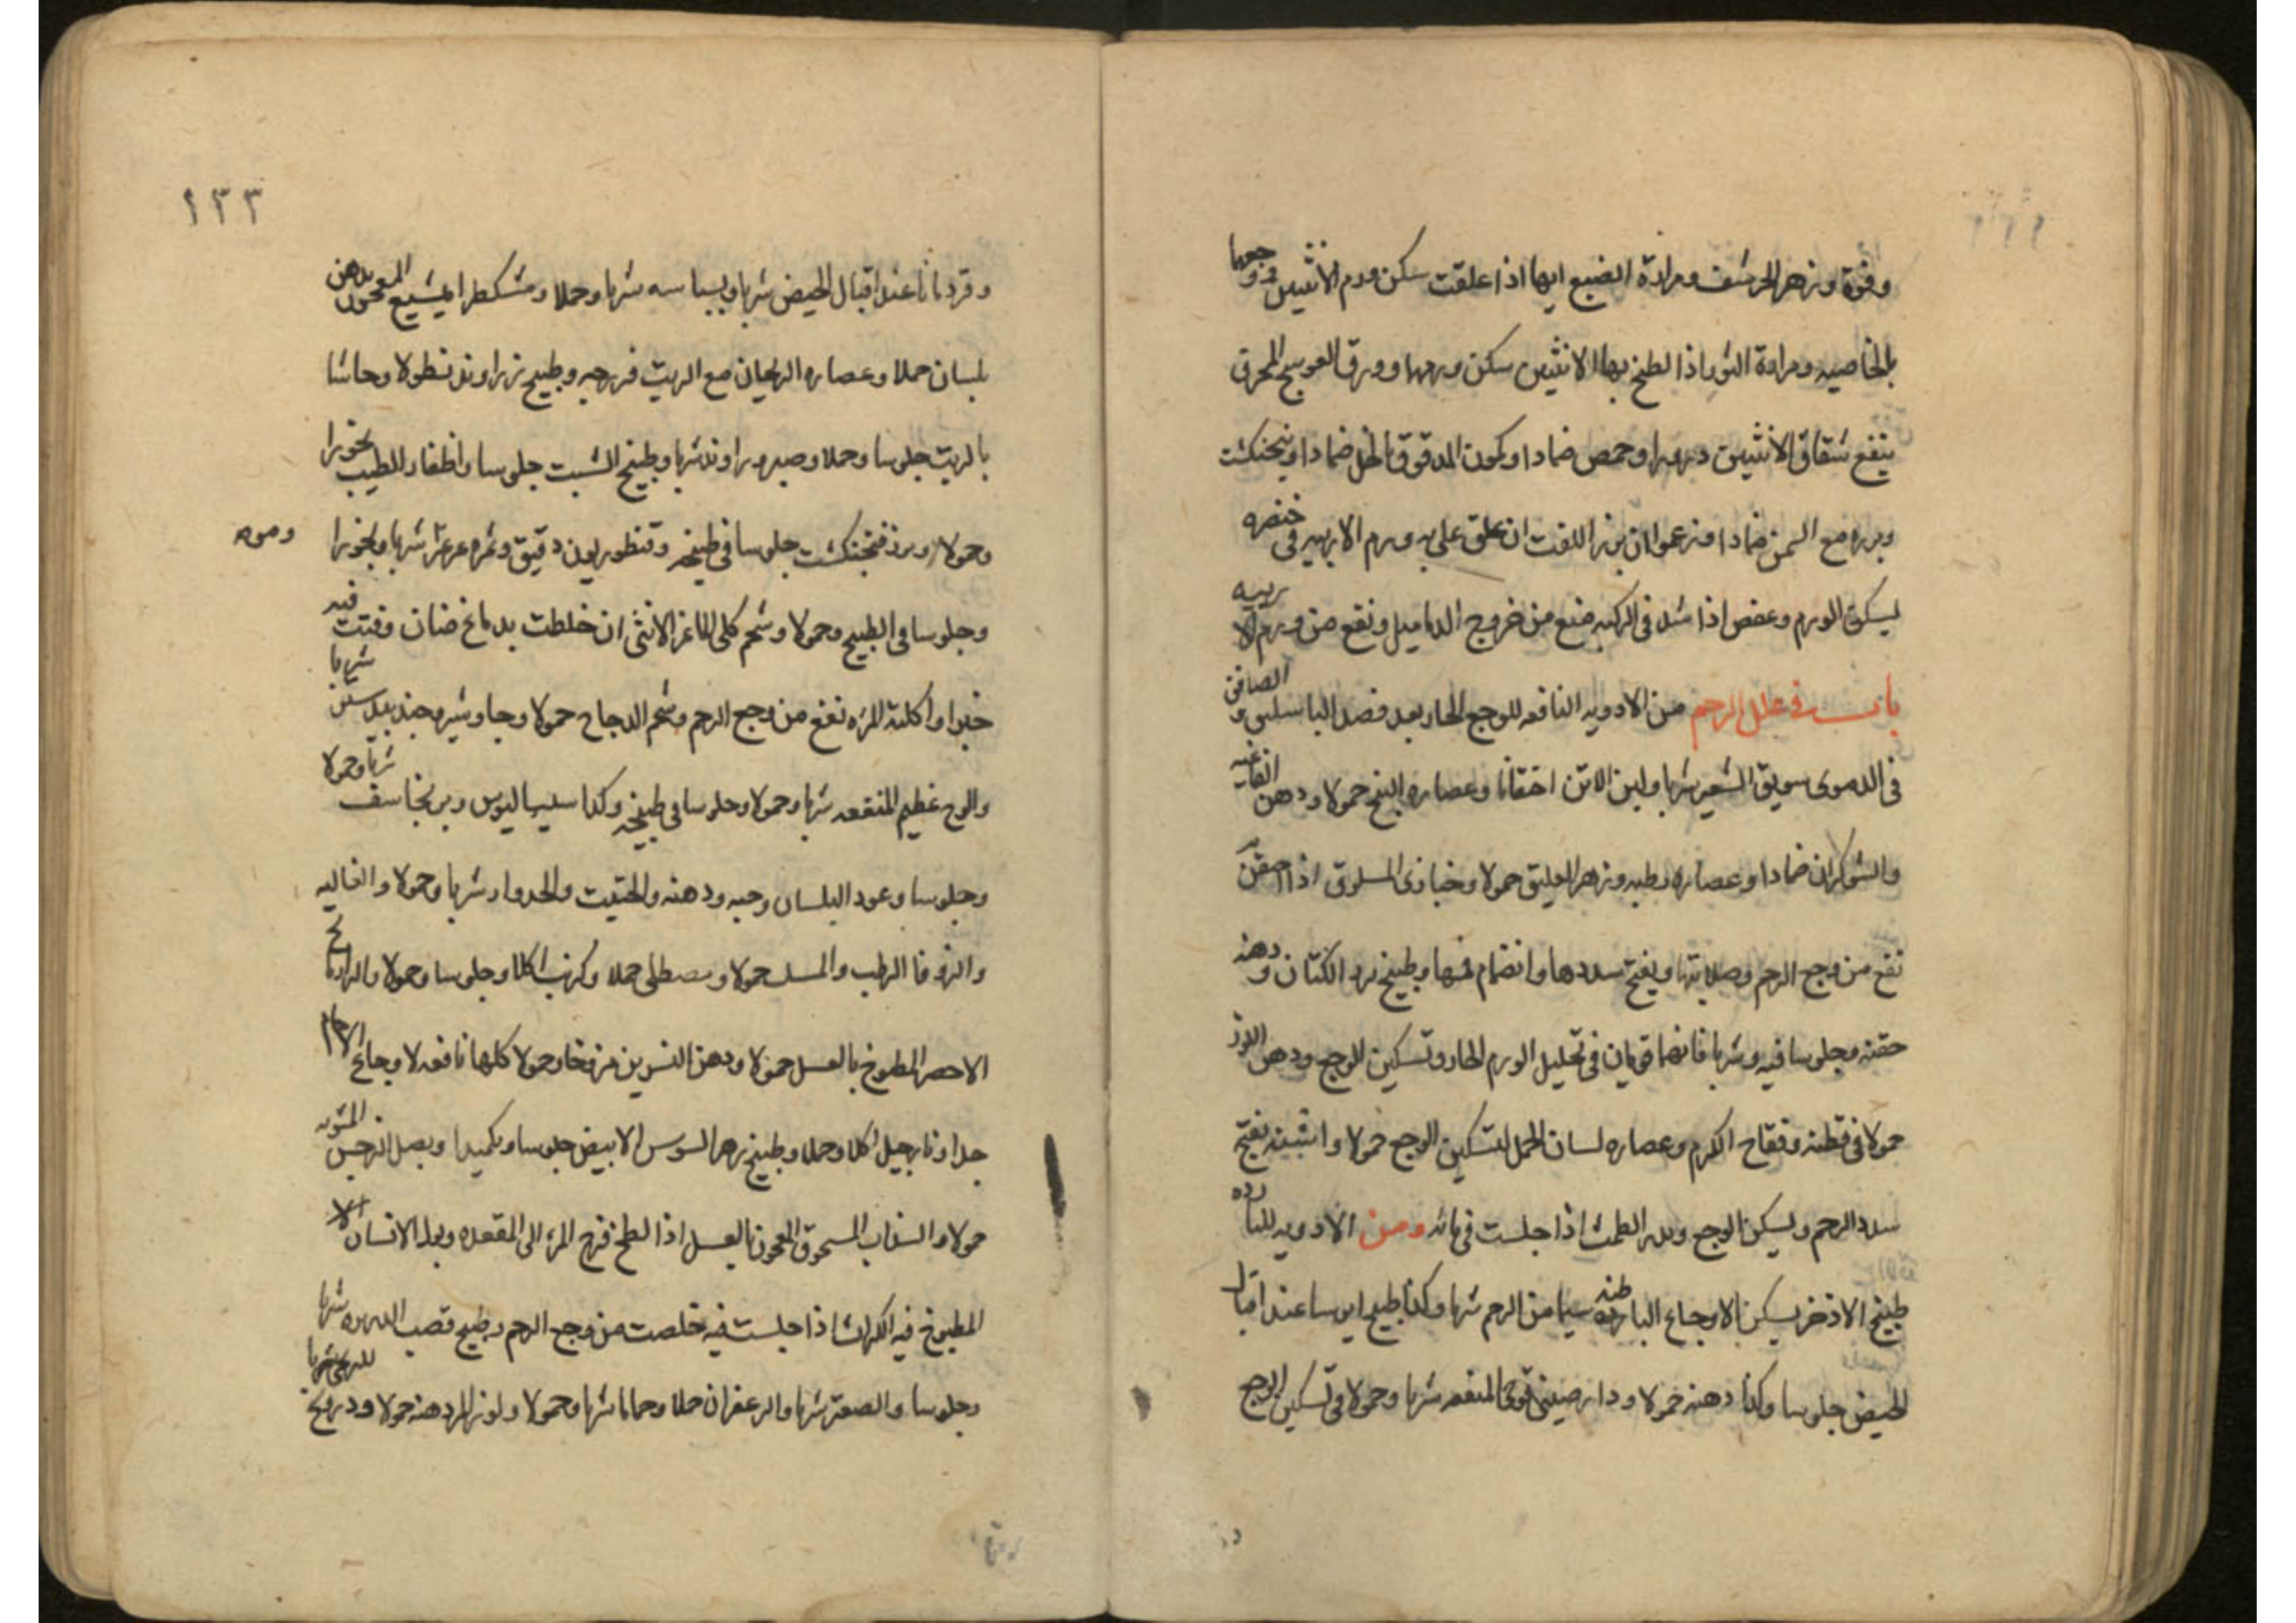 وفوة وزهر الحرشف ومرارة الضبع ايها اذا علقت سكن ورم الانثيين ووجعها
بالخاصيه ومرارة الثور اذا لطخ بها الانثيين سكن ورمها وورق العوسج المحرق
ينفع شقاق الانثيين وحمص ضمادا وكمون المدقوق بالخل ضمادا وبنجنكشت
وبزره مع السمن ضمادا وزعموا ان بزر اللفت ان علق على به ورم الاربيه فى خنصره
ليسكن الورم وعفص اذا شد فى الركبه منع من خروج الدماميل ونفع من ورم الاربيه
باب فى علل الرحم من الادويه النافعه للوجع الحار بعد فصد الباسليق والصافن
فى الدموى سويق الشعير شربا ولبن الاتن احتقانا وعصاره البنج حمولا ودهن الفاغيه
والشوكران ضمادا وعصاره رطبه وزهر العليق حمولا وخبازى المسلوق اذا احتقن به
نفع من وجع الرحم وصلابتها ويفتح سددها وانضمام فمها وطبيخ بزر الكتان ودهنه
حقنه وجلوسا فيه وشربا فانهما قويان فى تحليل الورم الحار وتسكين للوجع ودهن اللوز
حمولا فى قطنه وفقاح الكرم وعصاره لسان الحمل لتسكين الوجع حمولا واشنه يفتح
سدد الرحم ويسكن الوجع ويدر الطمث اذا جلست فى مائه ومن الادويه للبارده
طبيخ الاذخر يسكن الاوجاع الباطنه سيما من الرحم شربا وكذا طبيخ ايرسا عند اقبال
الحيض جلوسا وكذا دهنه حمولا ودارصينى قوى المنفعه شربا وحمولا فى تسكين الوجع
١٣٣
وقردمانا عند اقبال الحيض شربا وبسباسه شربا وحملا ومشكطرامشيع المعجون بدهن
بلسان حملا وعصاره الريحان مع الزيت فرزجه وطبيخ زراوند نطولا وحاشا
بالزيت جلوسا وحملا وصبر وراوند شربا وطبيخ الشبت جلوسا واظفار الطيب بخورا
وحمولا وبزر فنجنكشت جلوسا فى طبيخه وقنطوريون دقيق وثمره عرعر شربا وبخورا
وجلوسا فى الطبيخ وحمولا وشحم كلى الماعز الانثى ان خلطت بدماغ ضان وفتت فيه
خبزا واكلته المره نفع من وجع الرحم وشحم الدجاج حمولا وجاوشير وجندبيدستر شربا
والوج عظيم المنفعه شربا وحمولا وجلوسا فى طبيخه وكذا سيساليوس وبرنجاسف شربا وحمولا
وجلوسا وعود البلسان وحبه ودهنه والحلتيت والجدوار شربا وحمولا والغاليه
والزوفا الرطب والمسك حمولا ومصطكى حملا وكرنب اكلا وجلوسا وحمولا
الاحمر المطبوخ بالعسل حمولا ودهن النسرين مروخا وحمولا كلها نافعه لاوجاع الارحام
جدا ونارجيل اكلا وحملا وطبيخ زهر السوسن الابيض جلوسا وتكميدا وبصل النرجس المشويه
حمولا والسذاب المسحوق المعجون بالعسل اذا لطخ فرج المرء الى المقعده
المطبوخ فيه الكراث اذا جلست فيه خلصت من وجع الرحم وطبيخ قصب الذريره شربا
وجلوسا والصعتر شربا والزعفران حملا وحماما شربا وحمولا ولوز المر دهنه حمولا ودرونج